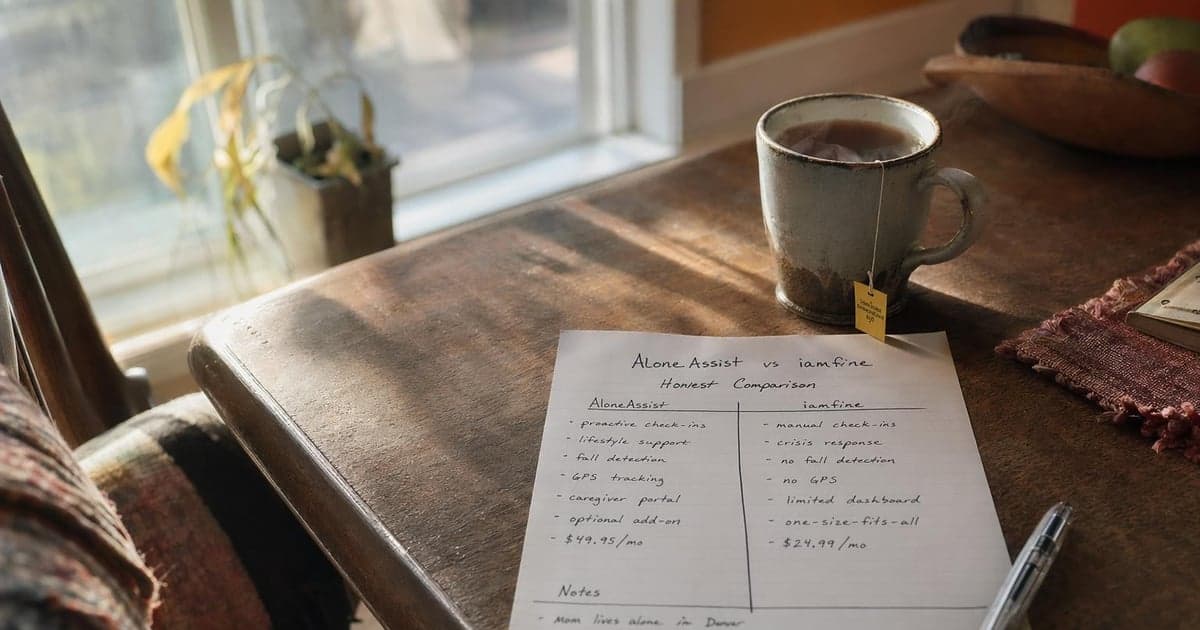 Alone Assist vs iamfine
Honest Comparison
AloneAssist
- proactive check-ins
- lifestyle support
- fall detection
- GPS tracking
- caregiver portal
- optional add-on
- $49.95/mo
iamfine
- manual check-ins
- crisis response
- no fall detection
- no GPS
- limited dashboard
- one-size-fits-all
- $24.99/mo
Notes
- Mom lives alone in Denver